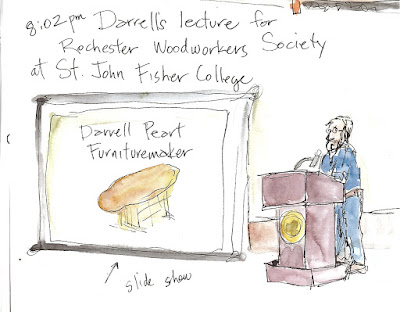 8:02 pm Darrell's lecture for
Rochester Woodworkers Society
at St. John Fisher College
Darrell Peart
Furnituremaker
slide show